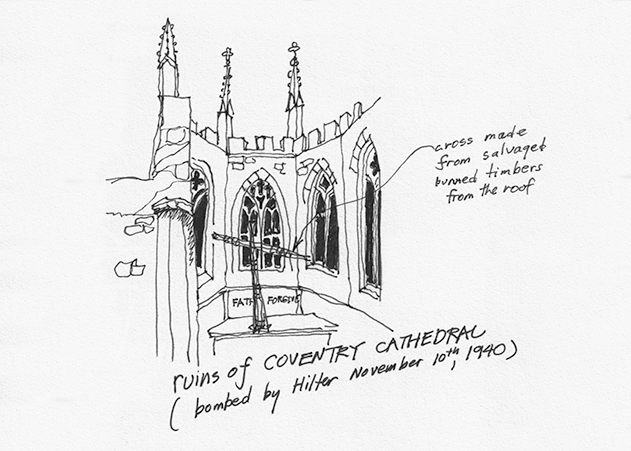 cross made
from salvaged
burned timbers
from the roof
FATH FORGIVE
ruins of COVENTRY CATHEDRAL
(bombed by Hilter November 10th, 1940)